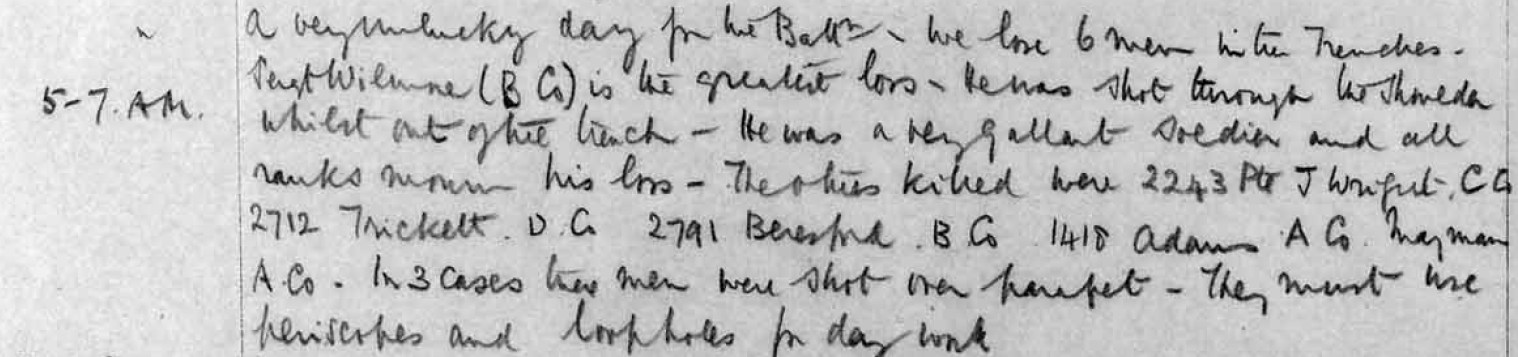 " A very unlucky day for the Battn - We lose 6 men in the Trenches -
5-7. AM. Sergt Wilmore (B Co) is the greatest loss - He was shot through the shoulder
whilst out of the trench - He was a very gallant soldier and all
ranks mourn his loss - The others killed were 2243 Pte J Wright. C Co
2712 Trickett. D. Co 2791 Beresford. B Co 1418 Adams A Co. Mayman
A Co - In 3 cases these men were shot over parapet - They must use
periscopes and loopholes for day work